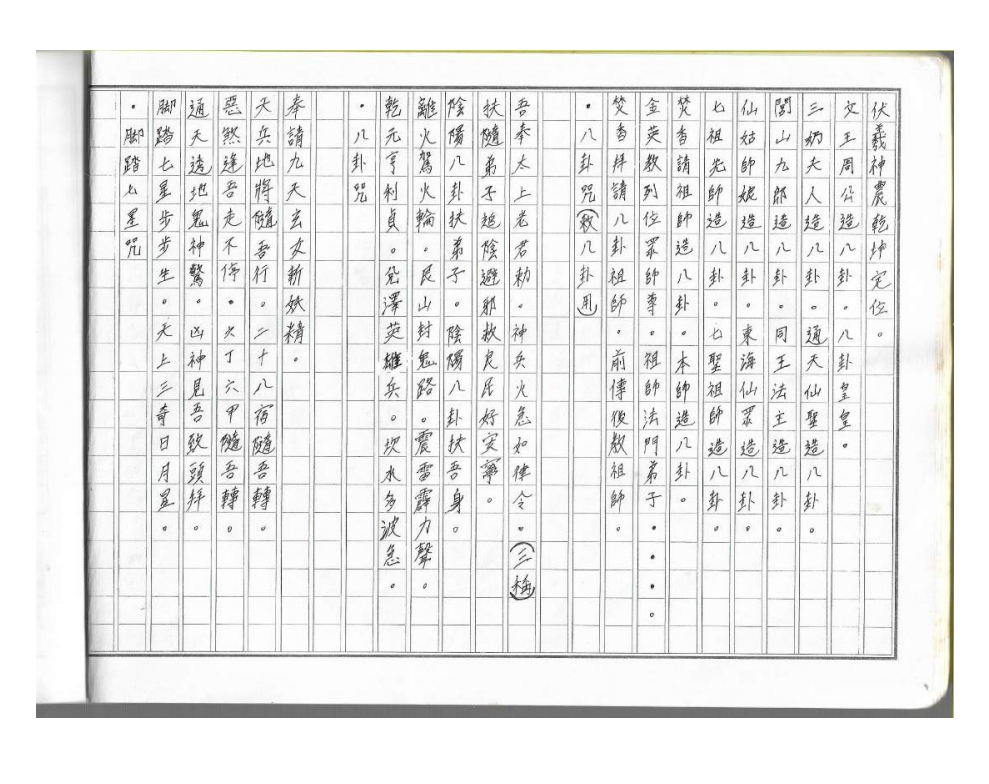 伏羲神農乾坤定位。
文王周公造八卦。八卦皇皇。
三奶夫人造八卦。通天仙聖造八卦。
閭山九郎造八卦。同王法主造八卦。
仙姑師娘造八卦。東海仙眾造八卦。
七祖先師造八卦。七聖祖師造八卦。
焚香請祖師造八卦。本師造八卦。
金英教列位眾師尊。祖師法門弟子・・・。
焚香拜請八卦祖師。前傳後教祖師。
・八卦咒(敕八卦用)
吾奉太上老君勅。神兵火急如律令。(三稱)
扶隨弟子追陰避邪救良民好安寧。
陰陽八卦扶弟子。陰陽八卦扶吾身。
離火駕火輪。艮山封鬼路。震雷霹力聲。
乾元亨利貞。兌澤英雄兵。坎水多波急。
・八卦咒
奉請九天玄女斬妖精。
天兵地將隨吾行。二十八宿隨吾轉。
惡煞逢吾走不停。火丁六甲隨吾轉。
通天透地鬼神驚。凶神見吾致頭拜。
脚踏七星步步生。天上三奇日月星。
・脚踏七星咒